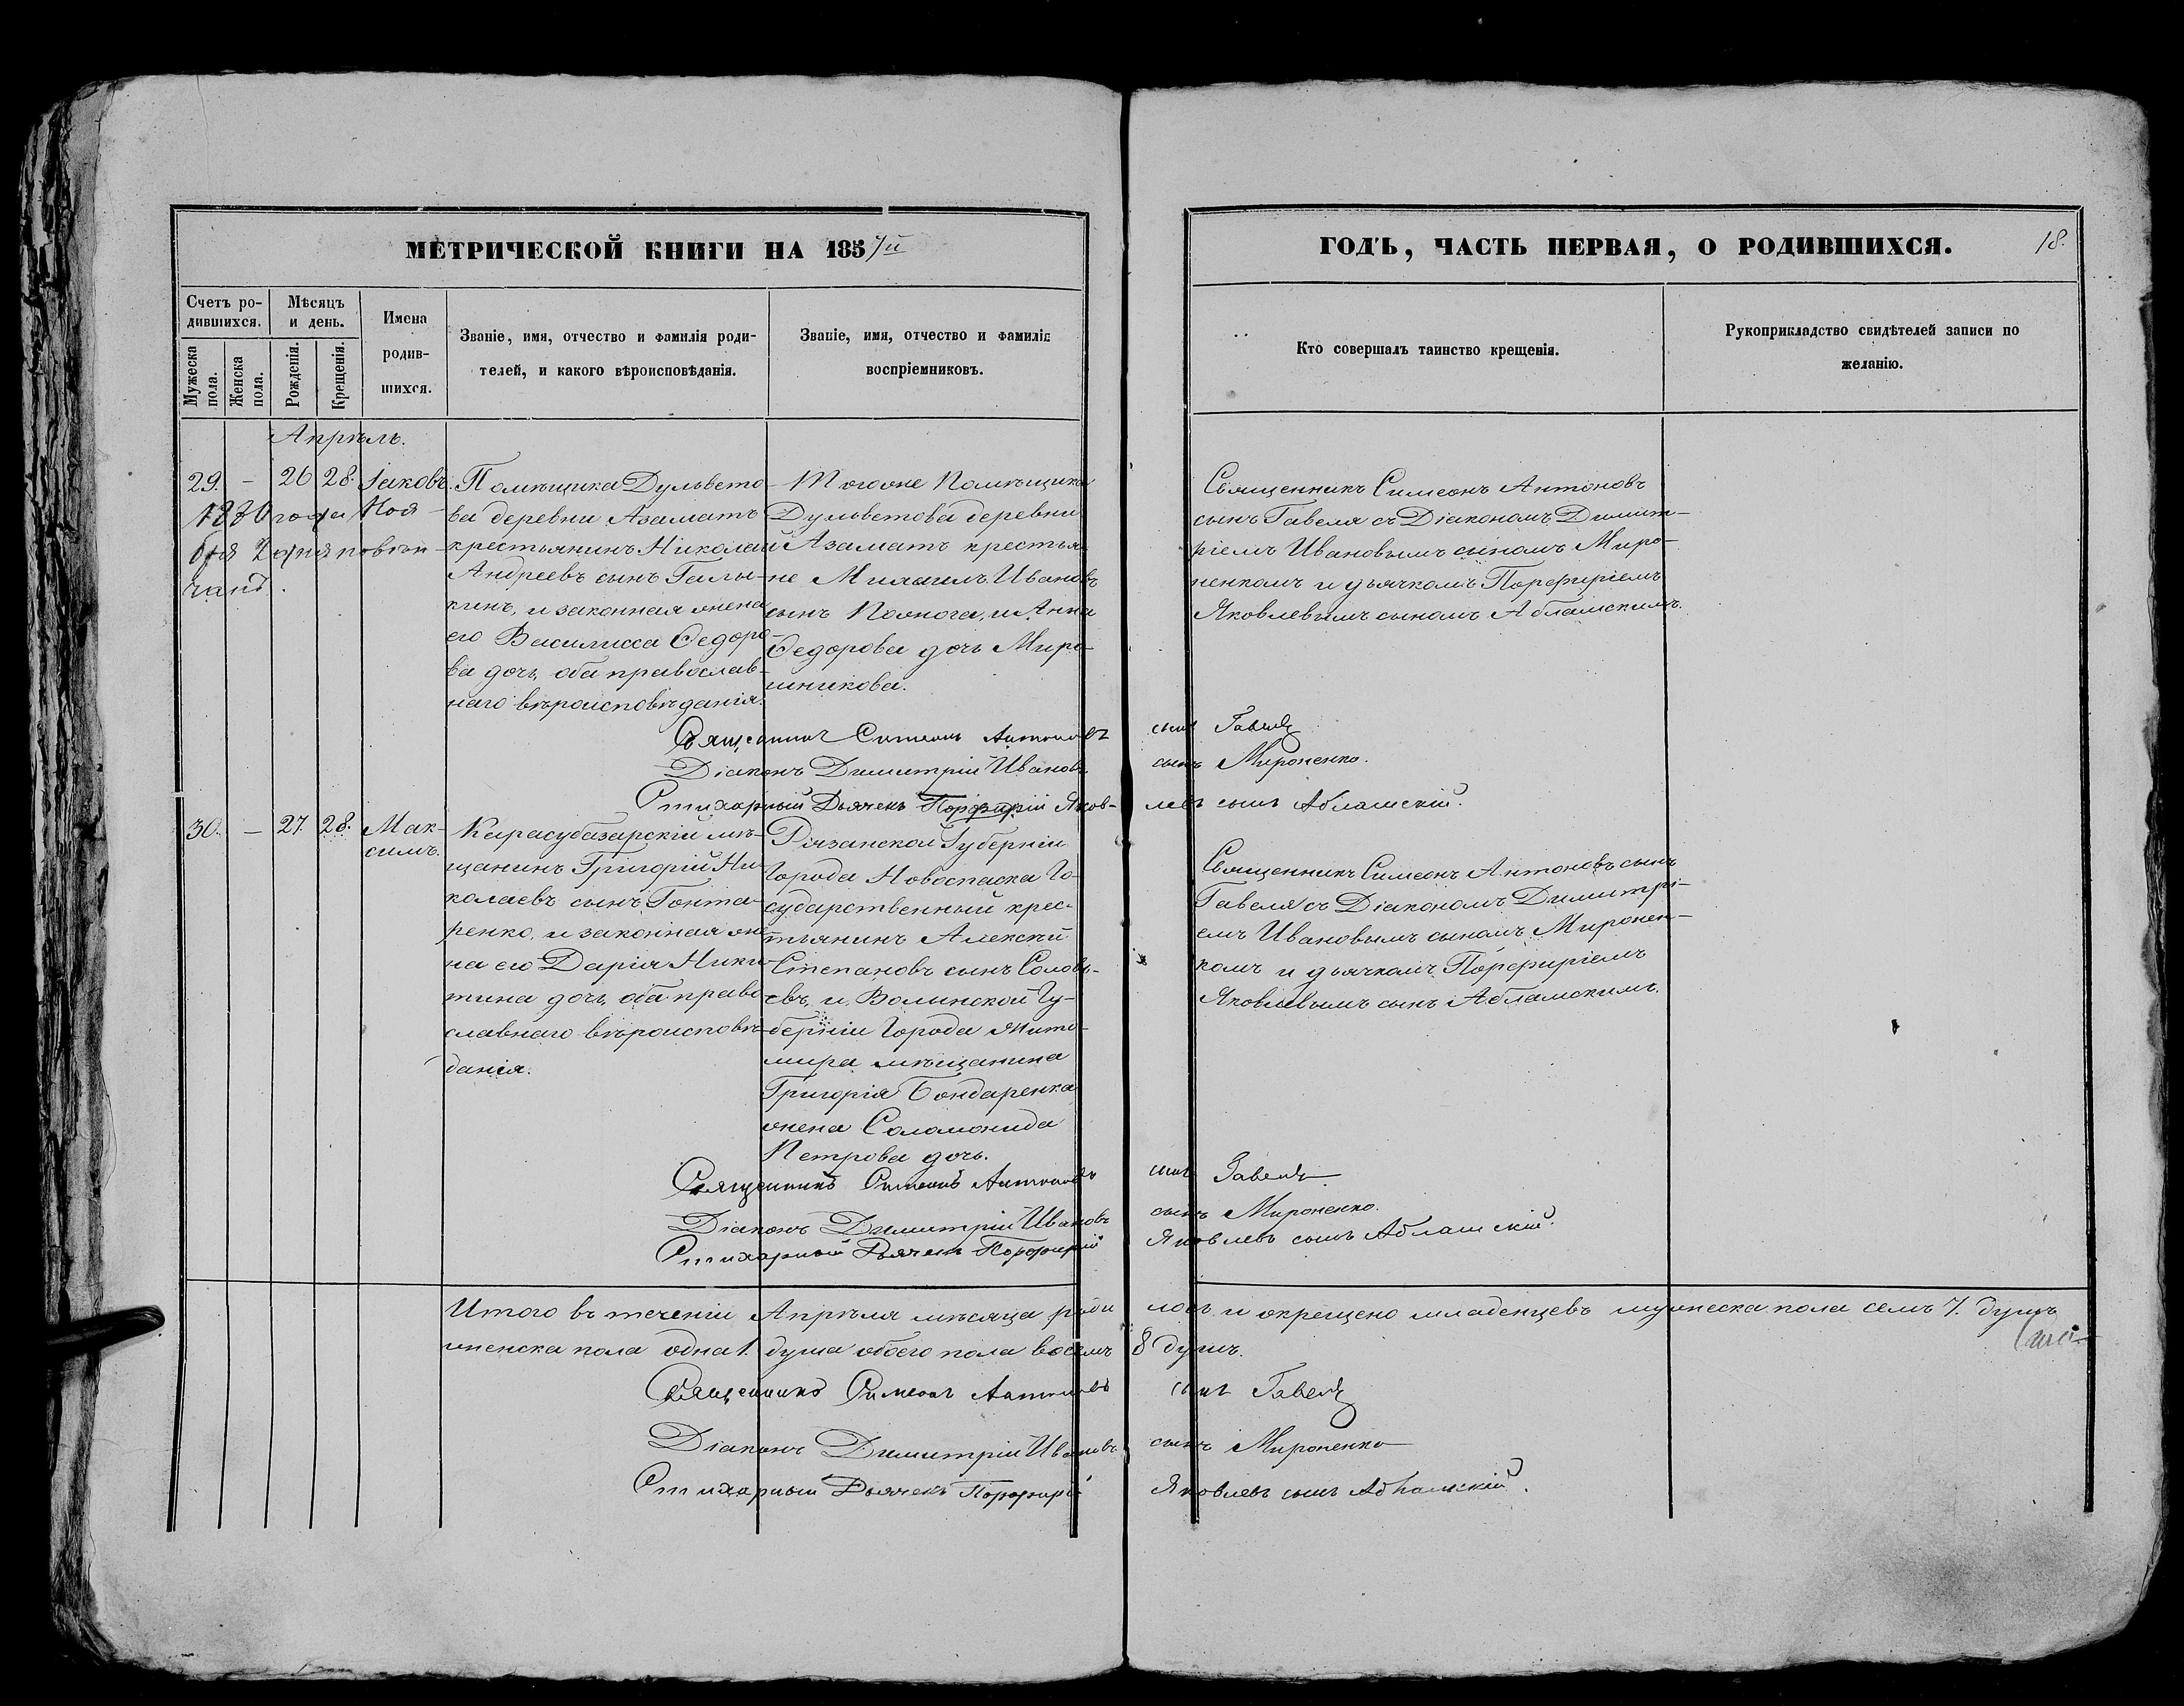 МЕТРИЧЕСКОЙ КНИГИ НА 1857й
ГОДЪ, ЧАСТЬ ПЕРВАЯ, О РОДИВШИХСЯ.
18.
Счетъ ро-
дившихся.
Мужеска
пола.
Женска
пола.
Мѣсяцъ
и день.
Рожденія.
Крещенія.
Имена
родив-
шихся.
Званіе, имя, отчество и фамилія роди-
телей, и какого вѣроисповѣданія.
Званіе, имя, отчество и фамилія
воспріемниковъ.
Кто совершалъ таинство крещенія.
Рукоприкладство свидѣтелей записи по
желанію.
Апрѣль.
29. – 26 28. Іаковъ.
года Ноя-
бря дня повѣн-
чанъ.
Помѣщика Дульвето-
ва деревни Азаматъ
крестьянинъ Николай
Андреевъ сынъ Галы-
кинъ, и законная жена
его Василисса Ѳедоро-
ва дочь, оба православ-
наго вѣроисповѣданія.
Тогоже Помѣщика
Дульветова деревни
Азаматъ крестья-
не Михаилъ Ивановъ
сынъ и Анна
Ѳедорова дочь Миро-
шникова.
Священникъ Симеонъ Антоновъ
сынъ Гавеля съ Діакономъ Димит-
ріемъ Ивановымъ сыномъ Миро-
ненкомъ и дьячкомъ Порфиріемъ
Яковлевымъ сыномъ Абламскимъ.
Священникъ Симеонъ Антоновъ сынъ Гавеля
Діаконъ Димитрій Ивановъ сынъ Мироненко.
Стихарный Дьячекъ Порфирій Яков-левъ сынъ Абламскій.
30. – 27. 28. Мак-
симъ.
Карасубазарскій мѣ-
щанинъ Григорій Ни-
колаевъ сынъ Гонта-
ренко, и законная же-
на его Дарія Ники-
тина дочь, оба право-
славнаго вѣроисповѣ-
данія.
Рязанской Губерніи
Города Новоспаска Го-
сударственный крес-
тьянинъ Алексѣй
Степановъ сынъ Соловь-
евъ, и Волынской Гу-
берніи Города Жито-
мира мѣщанина
Григорія Бондаренка
жена Соломонида
Петрова дочь.
Священникъ Симеонъ Антоновъ сынъ
Гавеля съ Діакономъ Димитрі-
емъ Ивановымъ сыномъ Миронен-
комъ и дьячкомъ Порфиріемъ
Яковлевымъ сынъ Абламскимъ.
Священникъ Симеонъ Антоновъ сынъ Гавеля
Діаконъ Димитрій Ивановъ сынъ Мироненко.
Стихарный Дьячекъ Порфирій Яковлевъ сынъ Абламскій.
Итого въ теченіи Апрѣля мѣсяца роди лось и окрещено младенцевъ мужеска пола семь 7. душъ
женска пола одна 1. душа обоего пола восемь 8 душъ.
Священникъ Симеонъ Антоновъ сынъ Гавеля
Діаконъ Димитрій Ивановъ сынъ Мироненко
Стихарный Дьячекъ Порфирій Яковлевъ сынъ Абламскій.